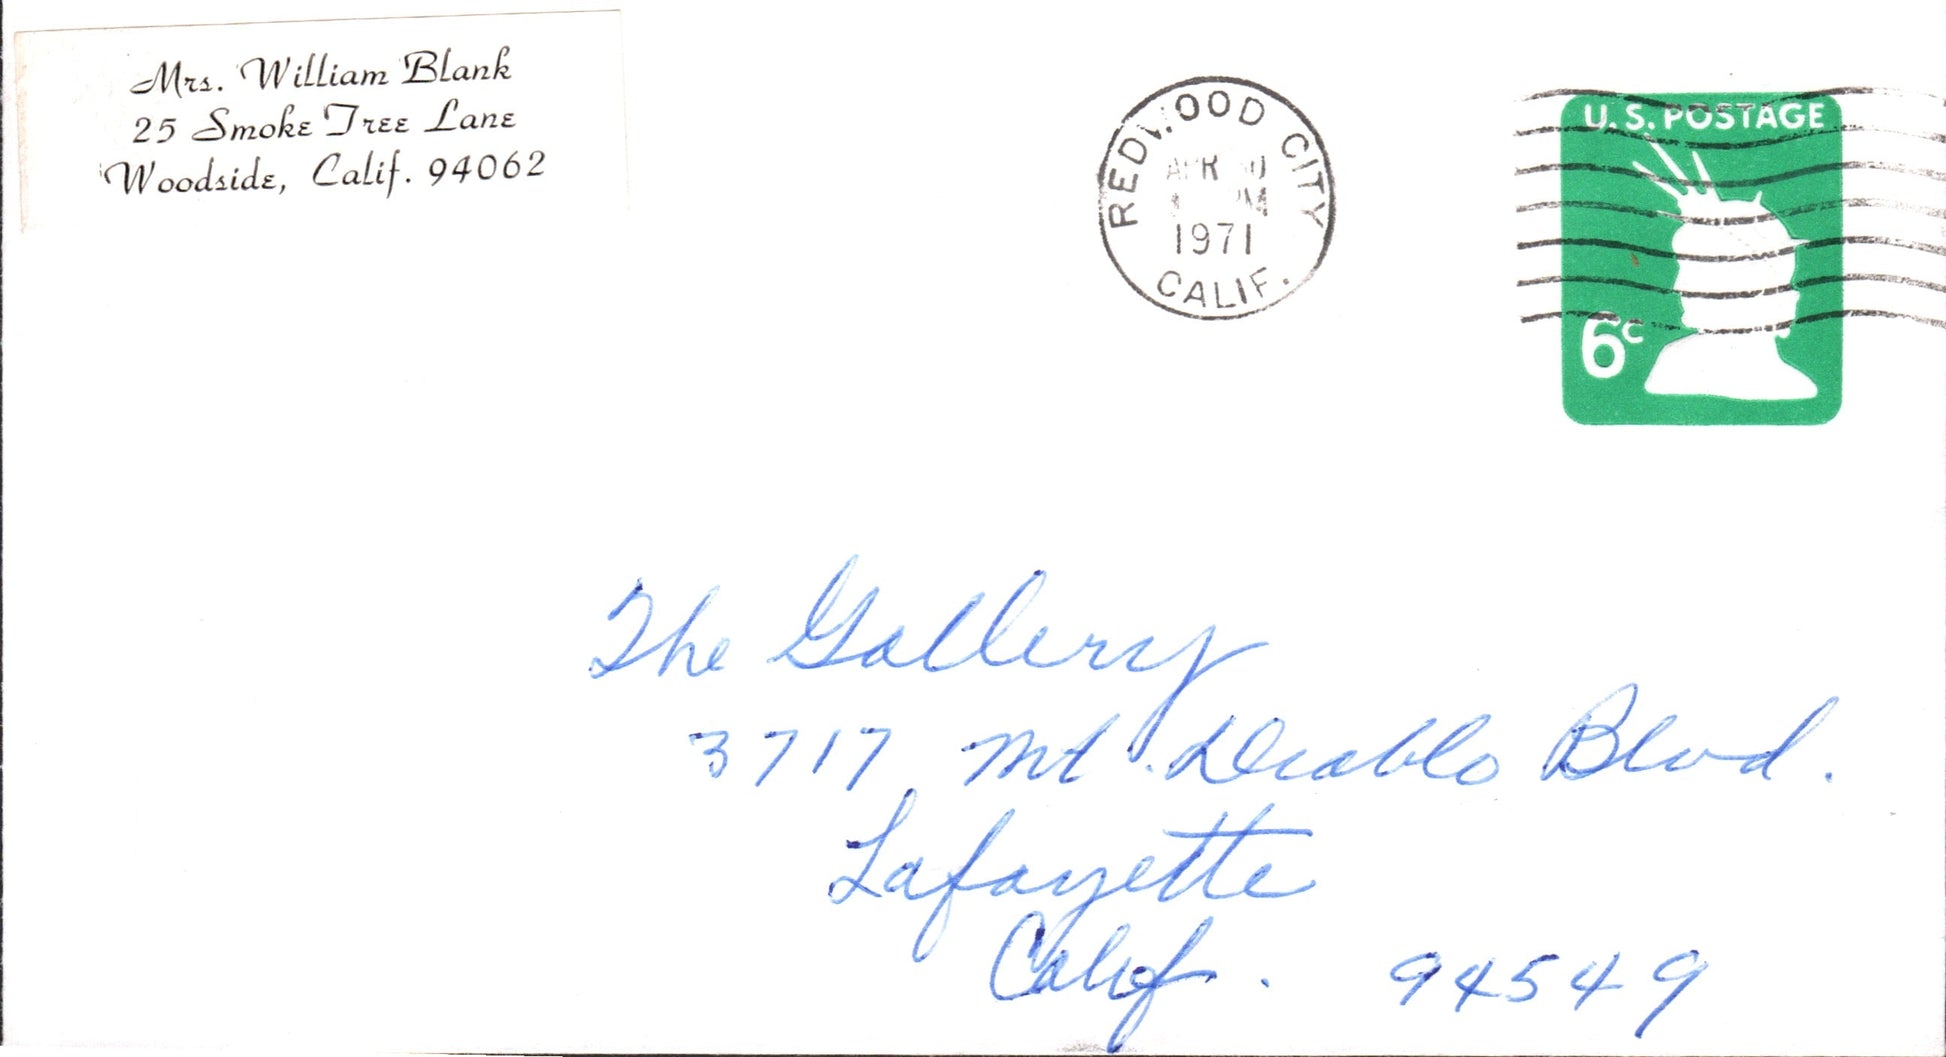 Mrs. William Blank
25 Smoke Tree Lane
Woodside, Calif. 94062
REDWOOD CITY
APR
PM
1971
CALIF.
U.S. POSTAGE
6c
The Gallery
3717 Mt. Diablo Blvd.
Lafayette
Calif. 94549